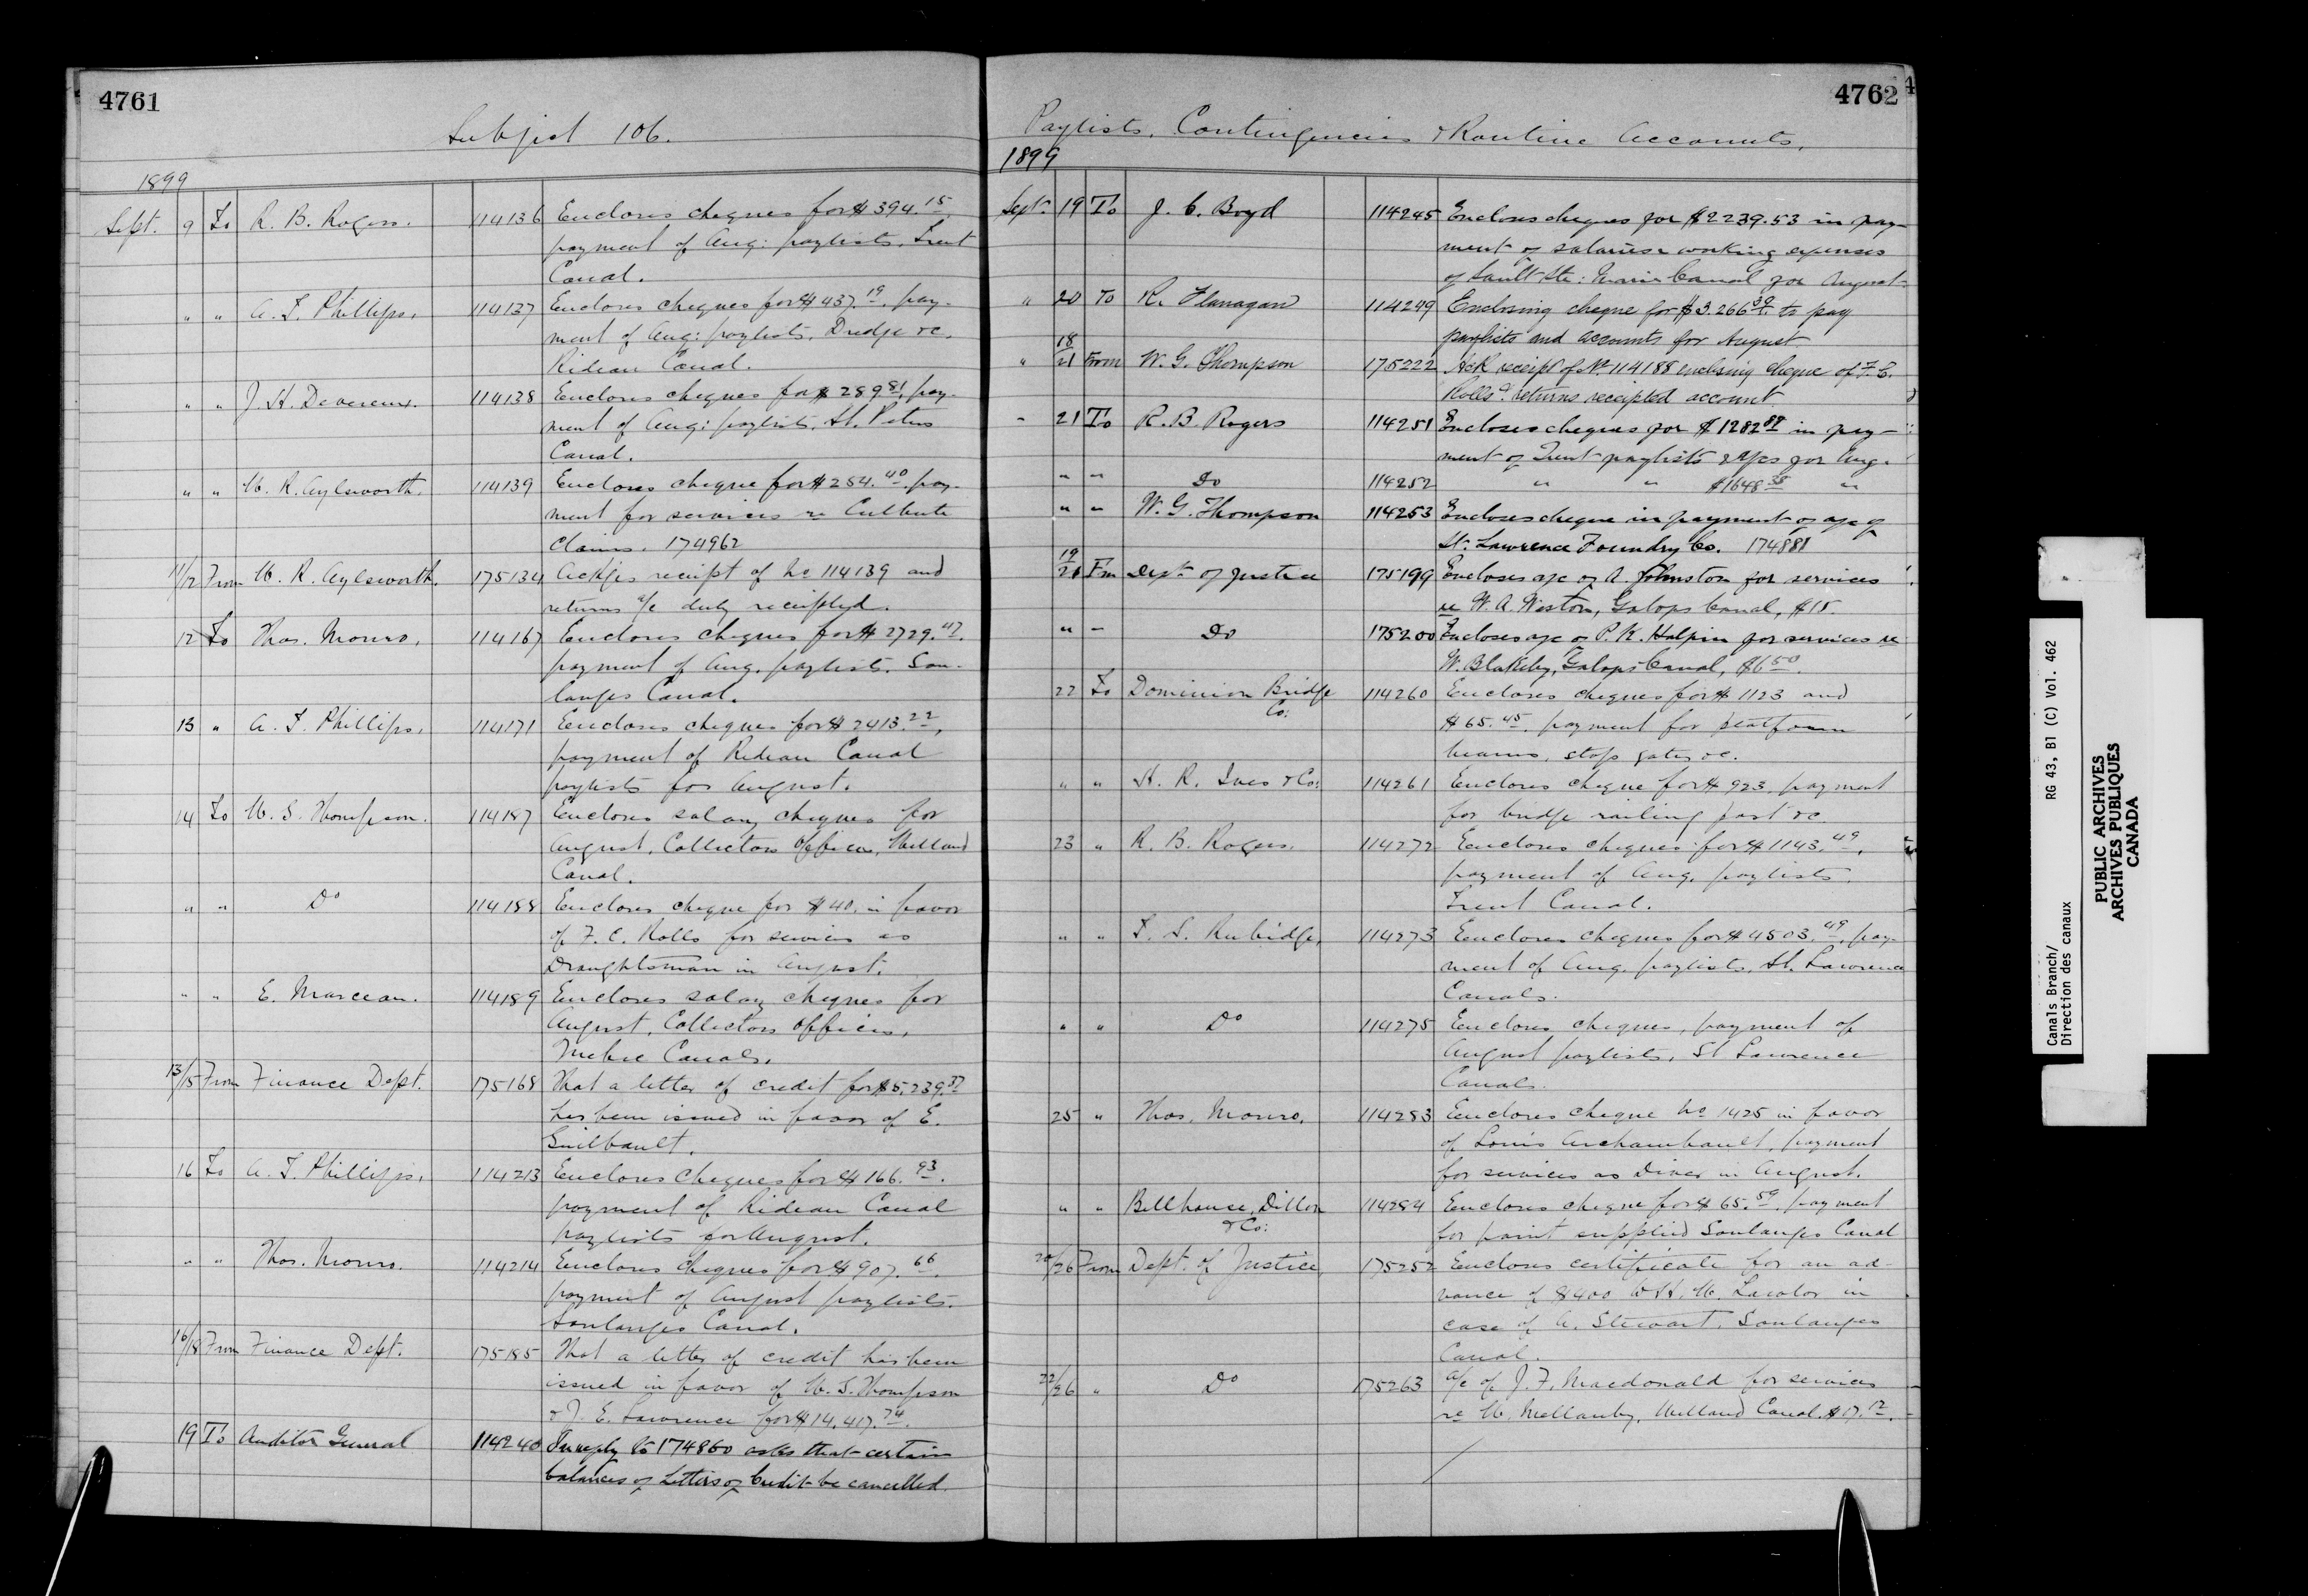 4761
Subject 106.
1899
Sept. 9 To R. B. Rogers. 114136 Encloses cheques for $394.15,
payment of Aug: paylists, Trent
Canal.
" " A. T. Phillips, 114137 Encloses cheques for $437.19, pay-
ment of Aug: paylists, Dredge &c.
Rideau Canal.
" " J. H. Devereux. 114138 Encloses cheques for $289.81, pay-
ment of Aug: paylists, St. Peters
Canal.
" " W. R. Aylsworth. 114139 Encloses cheque for $254.40, pay-
ment for services re Culbute
Claims. 174962
11/12 From W. R. Aylsworth. 175134 Ackges receipt of No 114139 and
returns a/c duly receipted.
12 To Thos. Monro, 114167 Encloses cheques for $2729.47,
payment of Aug. paylists. Sou-
langes Canal.
13 " A. T. Phillips, 114171 Encloses cheques for $2413.22,
payment of Rideau Canal
paylists for August.
14 To W. G. Thompson. 114187 Encloses salary cheques for
August, Collectors Offices, Welland
Canal.
" " Do 114188 Encloses cheque for $40. in favor
of F. C. Rolls for services as
Draughtsman in August.
" " E. Marceau. 114189 Encloses salary cheques for
August, Collectors Offices,
Quebec Canals.
13/15 From Finance Dept. 175168 That a letter of credit for $5,239.37
has been issued in favor of E.
Guilbault.
16 To A. T. Phillips, 114213 Encloses cheques for $166.93.
payment of Rideau Canal
paylists for August.
" " Thos. Monro. 114214 Encloses cheques for $907.66.
payment of August paylists.
Soulanges Canal.
16/18 From Finance Dept. 175185 That a letter of credit has been
issued in favor of W. G. Thompson
& J. E. Lawrence for $14,417.74.
19 To Auditor General 114240 In reply to 174860 asks that certain
balances of Letters of Credit be cancelled.
4762
Paylists, Contingencies & Routine Accounts,
1899
Sept. 19 To J. C. Boyd 114245 Encloses cheques for $2239.53 in pay-
ment of salaries & working expenses
of Sault Ste: Marie Canal for August
" 20 To R. Flanagan 114249 Enclosing cheque for $3.266.39 to pay
paylists and accounts for August.
" 18/21 From W. G. Thompson 175222 Ack receipt of No 114188 enclosing cheque of F. C.
Rolls & returns receipted account
" 21 To R. B. Rogers 114251 Encloses cheques for $1282.87 in pay-
ment of Trent paylists & a/cs for Aug.
" " Do 114252 " " $1648.38 "
" " W. G. Thompson 114253 Encloses cheque in payment of a/c of
St. Lawrence Foundry Co. 174881
19/21 Fm Dept. of Justice 175199 Encloses a/c of A. Johnston for services
re W. A. Weston, Galops Canal, $15.
" " Do 175200 Encloses a/c of P. K. Halpin for services re
W. Blakely, Galops Canal, $6.50.
22 To Dominion Bridge 114260 Encloses cheques for $1123 and
Co: $65.45, payment for platform
beams, stop gates &c.
" " H. R. Ives & Co: 114261 Encloses cheque for $923, payment
for bridge railing post &c.
23 " R. B. Rogers. 114272 Encloses cheques for $1143.49,
payment of Aug. paylists.
Trent Canal.
" " T. S. Rubidge, 114273 Encloses cheques for $4503.49, pay-
ment of Aug. paylists, St. Lawrence
Canals.
" " Do 114275 Encloses cheques, payment of
August paylists, St Lawrence
Canals.
25 " Thos. Monro, 114283 Encloses cheque No 1425 in favor
of Louis Archambault, payment
for services as Diver in August.
" " Bellhouse, Dillon 114284 Encloses cheque for $65.59, payment
& Co: for paint supplied Soulanges Canal
20/26 From Dept. of Justice, 175252 Encloses certificate for an ad-
vance of $400 to H. W. Lawlor in
case of A. Stewart, Soulanges
Canal.
22/26 " Do 175263 a/c of J. F. Macdonald for services
re W. Mellanby, Welland Canal. $17.12.
Canals Branch/
Direction des canaux
RG 43, B1 (C) Vol. 462
PUBLIC ARCHIVES
ARCHIVES PUBLIQUES
CANADA